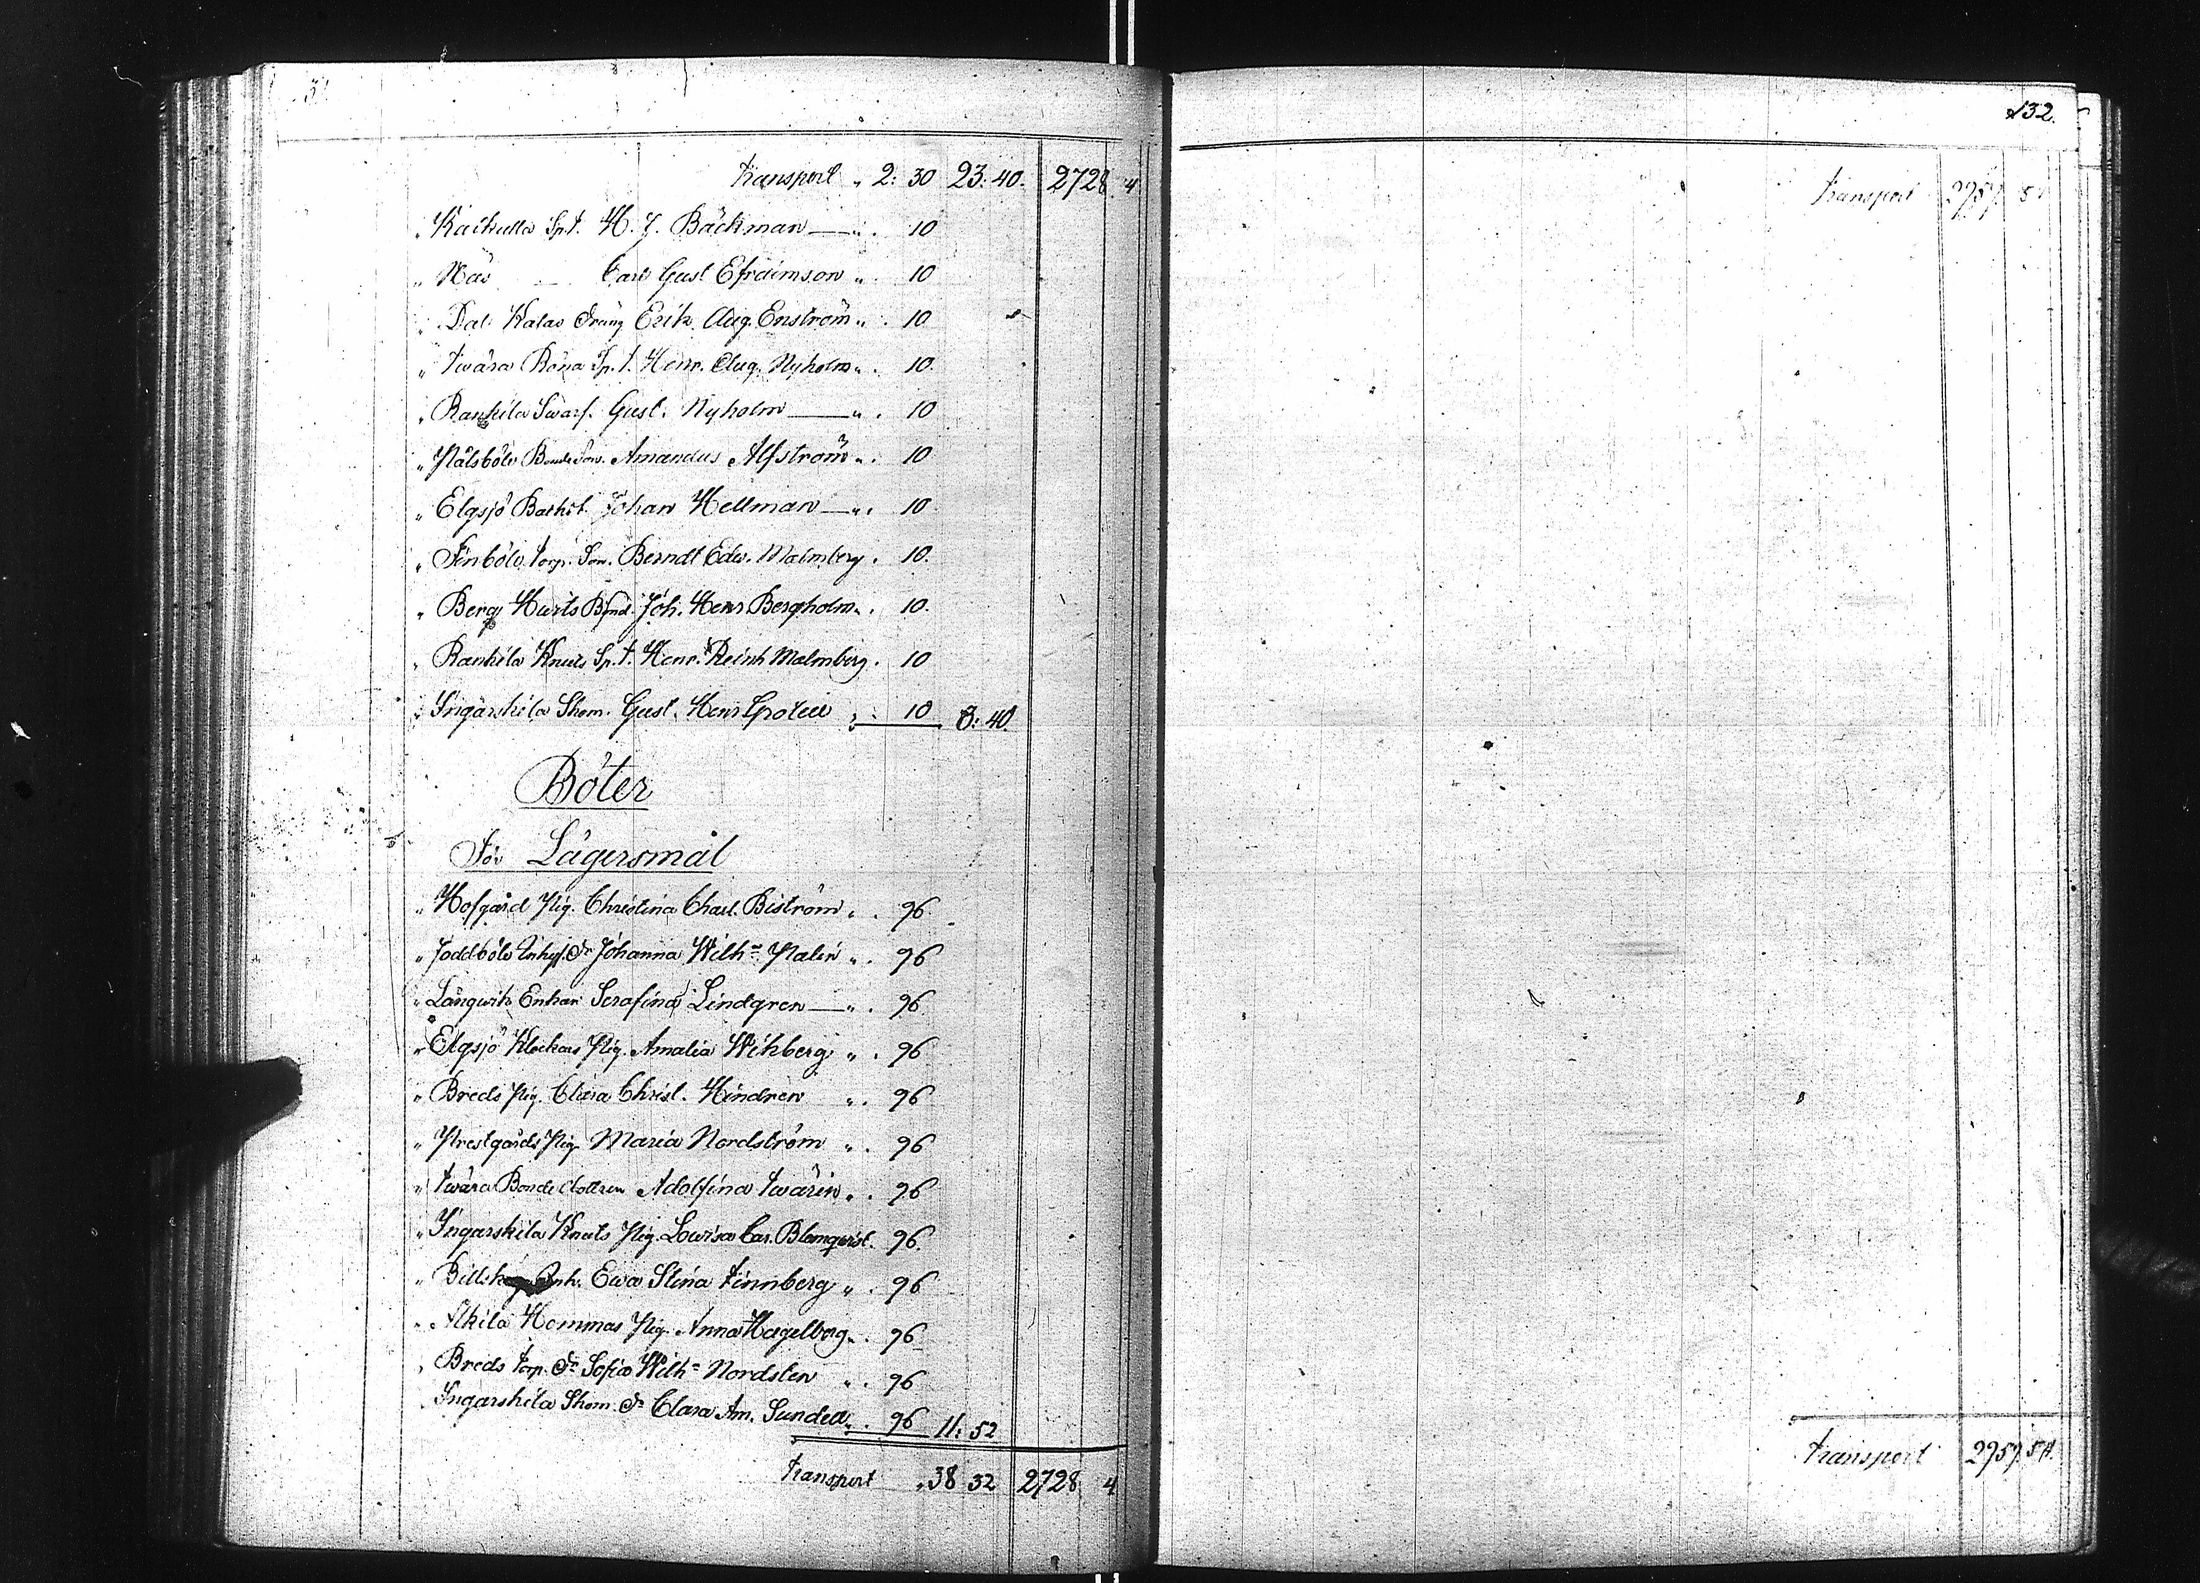 Transport „ 2: 30 23: 40. 2728. 4
„ Kackulla Sp.t. H. J. Bäckman — „. 10
„ Näs Carl Gust Efraimson „. 10
„ Dal Kalas dräng Erik Aug. Enström „. 10
„ Twära Röna Sp.t. Henr. Aug. Nyholm „. 10.
„ Rankila Swarf. Gust. Nyholm — „. 10
„ Pålsböle Bonde Son. Amandus Alfström „. 10
„ Elgsjö Johan Hellman — „. 10
„ Finböle Torp. Son. Berndt Edv. Malmberg. 10.
„ Berg Hurts Bond. Joh. Henr Bergholm „. 10.
„ Rankila Knuts Sp.t. Henr. Reinh Malmberg. 10
„ Ingarskila Skom. Gust. Henr „. 10 3: 40.
Böter
För Lägersmål
„ Hofgård Pig. Christina Charl. Biström „. 96.
„ Joddböle Inhys. dr Johanna Wilh= Palin „. 96
„ Långwik Enkan Serafina Lindgren — „. 96.
„ Elgsjö Klockars Pig. Amalia Wikberg „. 96
„ Breds Pig. Clara Christ. Hindren „. 96
„ Prestgårds Pig Maria Nordström „. 96
„ Twära Bonde dottren Adolfina Twärin „. 96
„ Ingarskila Knuts Pig. Lowisa Car. Blomqwist. 96.
„ Billsk Inh. Ewa Stina Finnberg „. 96
„ Akila Hommas Pig. Anna Hagelborg „. 96
„ Breds Torp. dr Sofia Wilh= Nordsten „. 96
„ Ingarskila Skom. dr Clara Am. Sundell „. 96 11: 52
Transport „ 38 32 2728 4
132.
Transport 2757. 51
Transport 2757. 51.